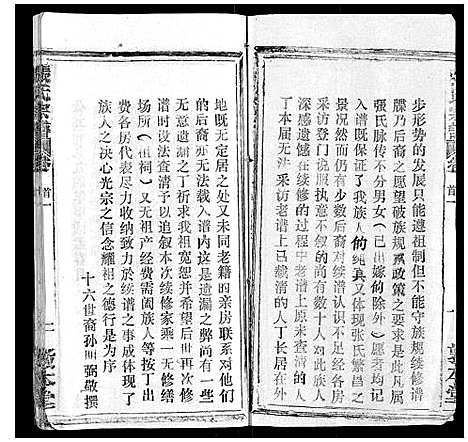 步形势的发展只能遵祖制但不能守族规续修谱
牒乃后裔之愿望破族规从政策之要求是此凡属
张氏脉传不分男女（已出嫁的除外）愿者均记
入谱内充分说明了我族人的纯真又体现张氏繁昌之
景况然而仍有少数后裔对续谱认识不足经各房
采访登门说服执意不叙的尚有数十人对此族人
深感遗憾在续修的过程中老谱上原未查清的人
丁本届无法采访老谱上已载清的人丁长居在外
地既无定居之处又未同老籍的亲房联系对他们
的后裔亦无法载入谱内这是遗漏之弊尚有一些
无意遗漏之丁祈求我祖宽恕并希望后世再次修
谱时设法查清予以追叙本次续修家乘一无修缮
场所（祖祠）又无祖产经费需阖族人等按丁出
费各房代表尽力收纳致力於续谱之事成体现了
族人之决心光宗之信念耀祖之德行是为序
十六世裔孙 强敬撰
张氏宗谱 卷首